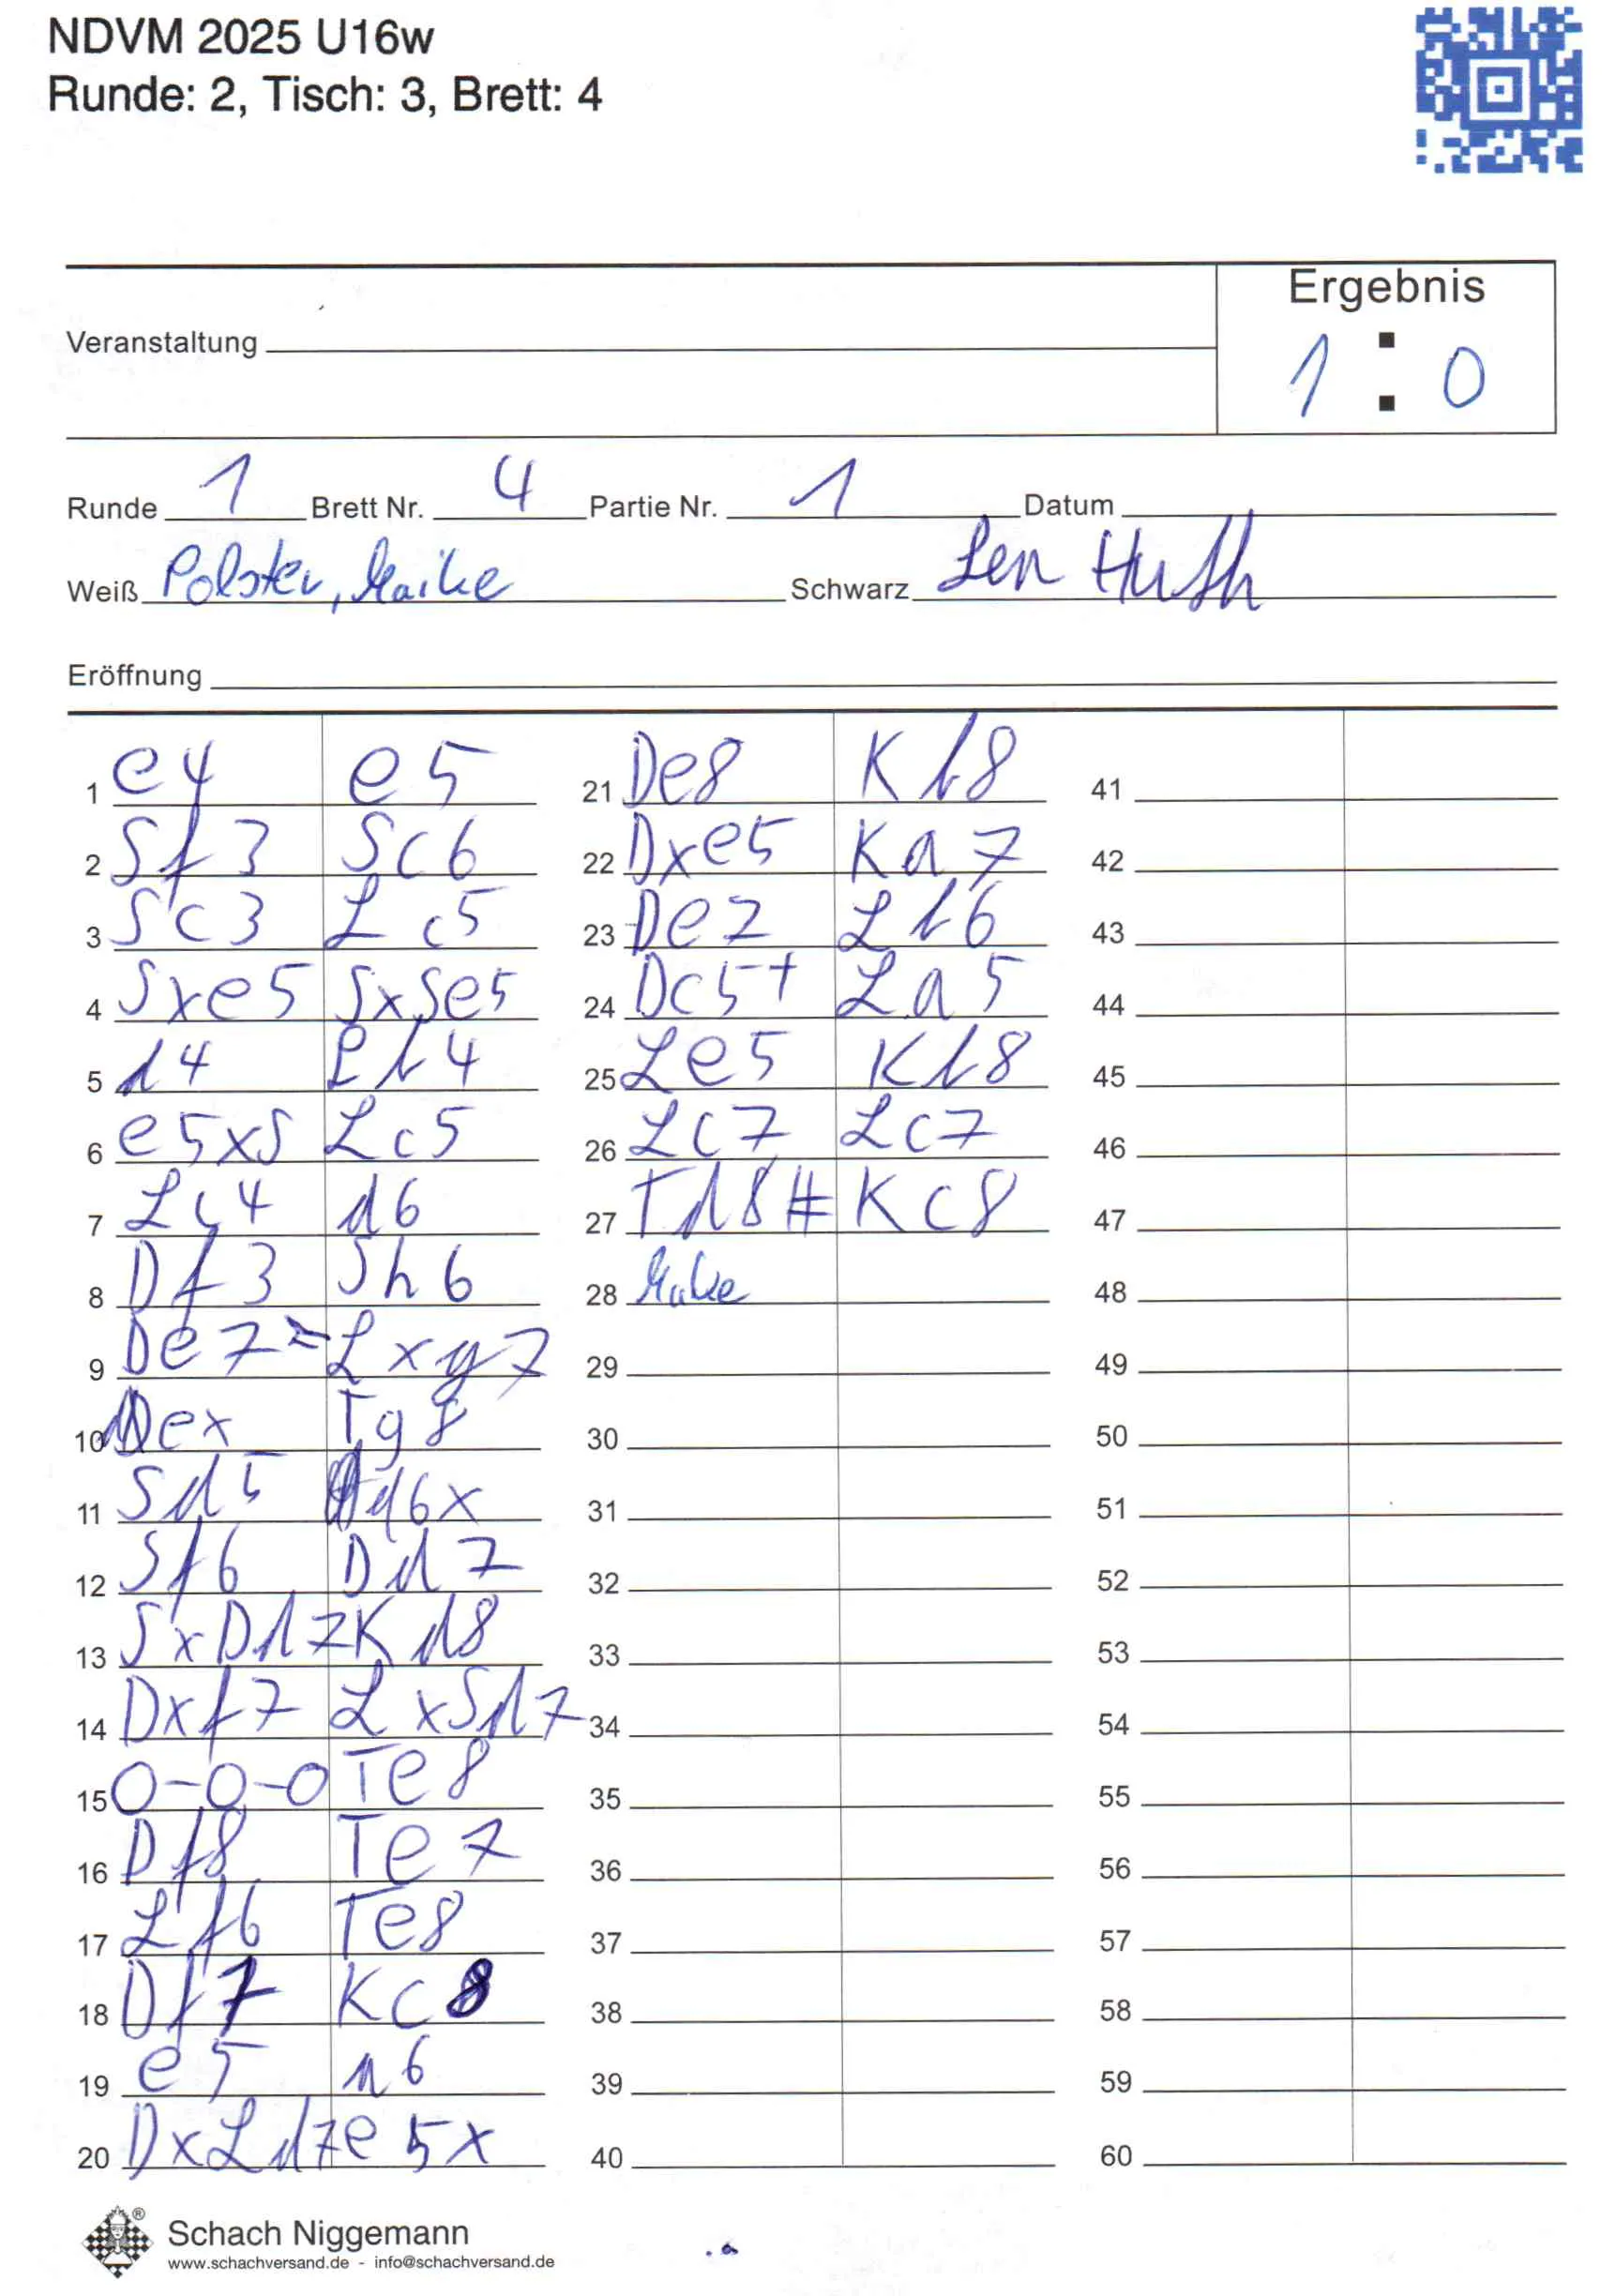 NDVM 2025 U16w
Runde: 2, Tisch: 3, Brett: 4
Ergebnis
Veranstaltung
1 : 0
Runde 1 Brett Nr. 4 Partie Nr. 1 Datum
Weiß Polster, Maike Schwarz Len Huth
Eröffnung
1 e4 e5
2 Sf3 Sc6
3 Sc3 Lc5
4 Sxe5 SxSe5
5 d4 Ld4
6 e5xS Lc5
7 Lc4 d6
8 Df3 Sh6
9 De7 Lxg7
10 Dex Tg8
11 Sd5 d6x
12 Sf6 Dd7
13 SxDd7 Kd8
14 Dxf7 LxSd7
15 0-0-0 Te8
16 Df8 Te7
17 Lf6 Te8
18 Df7 Kc8
19 e5 a6
20 DxLd7 e5x
21 De8 Kb8
22 Dxe5 Ka7
23 De7 Lb6
24 Dc5+ La5
25 Le5 Kb8
26 Lc7 Lc7
27 Td8# Kc8
28 Maike
29
30
31
32
33
34
35
36
37
38
39
40
41
42
43
44
45
46
47
48
49
50
51
52
53
54
55
56
57
58
59
60
Schach Niggemann
www.schachversand.de - info@schachversand.de